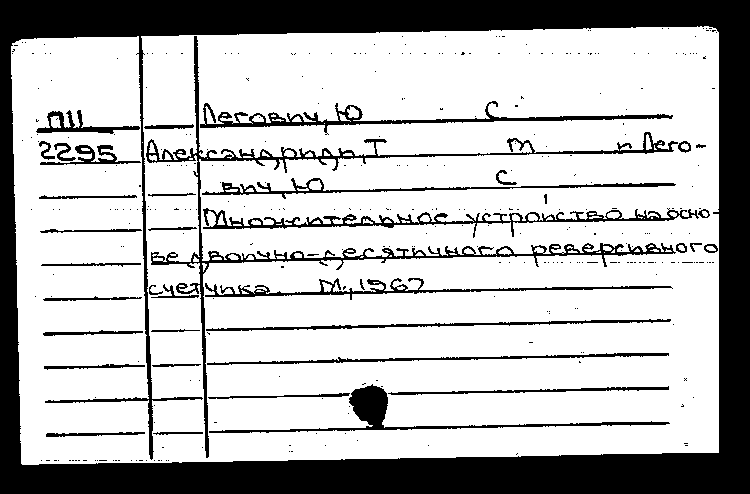 П11 Легович, Ю С.
2295 Александриди, Т М и Лего-
вич, Ю С
Множительное устройство на осно-
ве двоично-десятичного реверсивного
счетчика. М., 1967